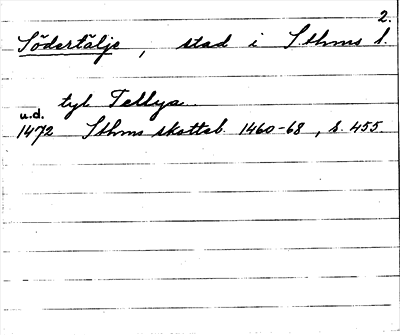 2.
Södertälje, stad i Sthms l.
tyl Tellya
u.d.
1472 Sthms skatteb. 1460-68, s. 455.